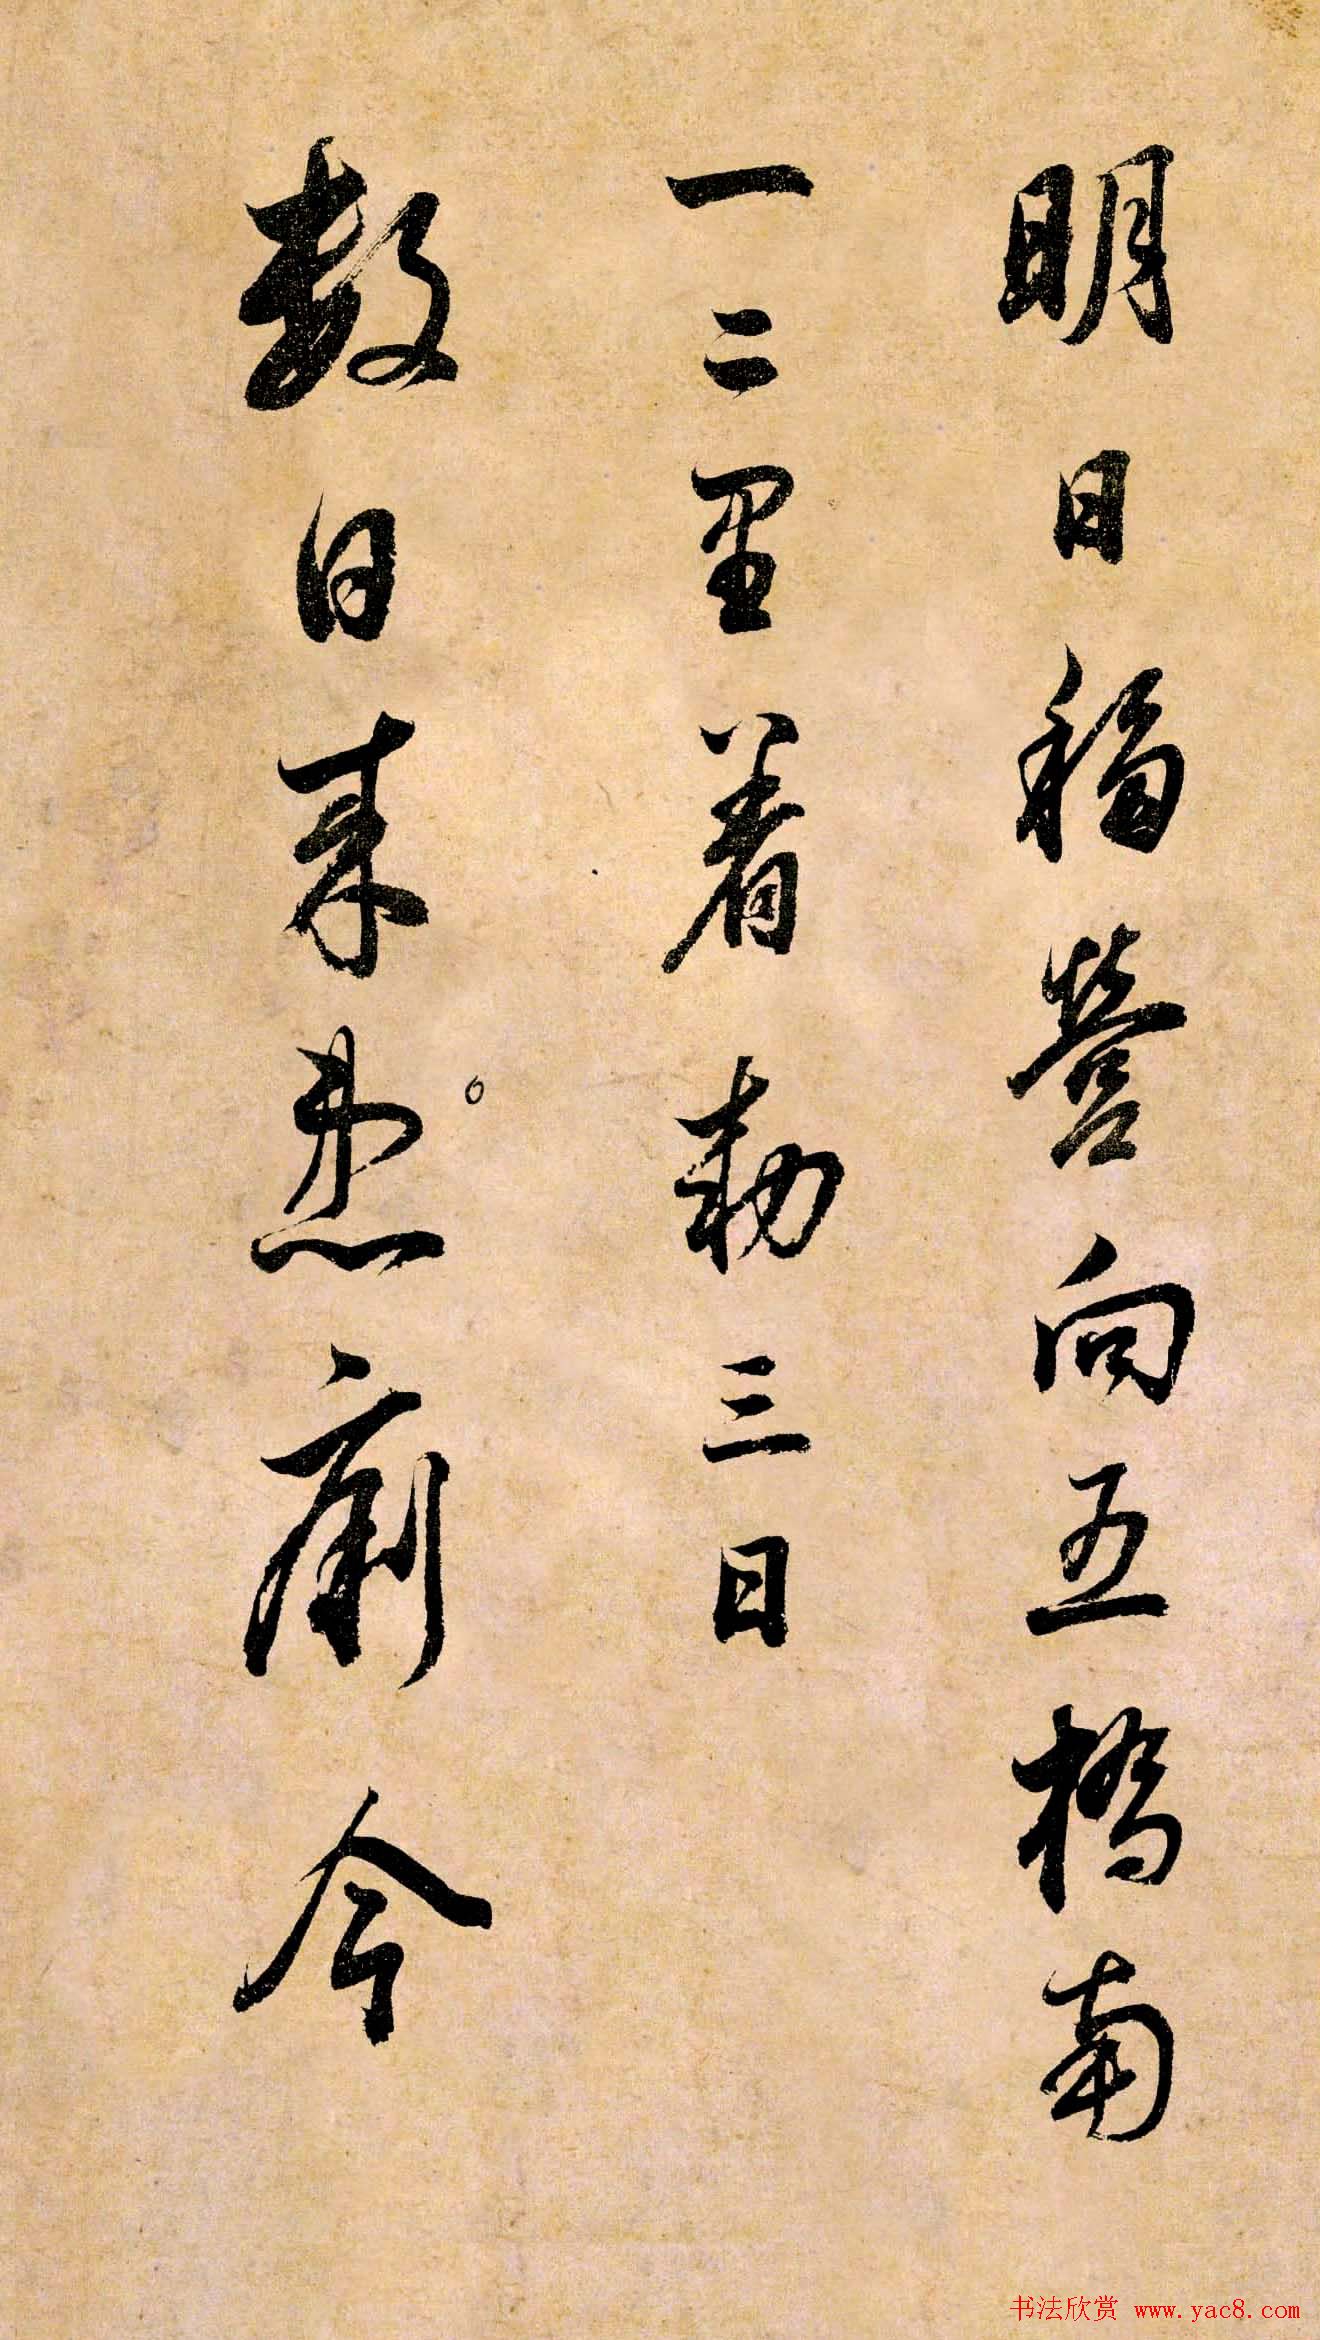 明日移營向五橋南
一二里著勅三日
數日來患痢今
书法欣赏 www.yac8.com